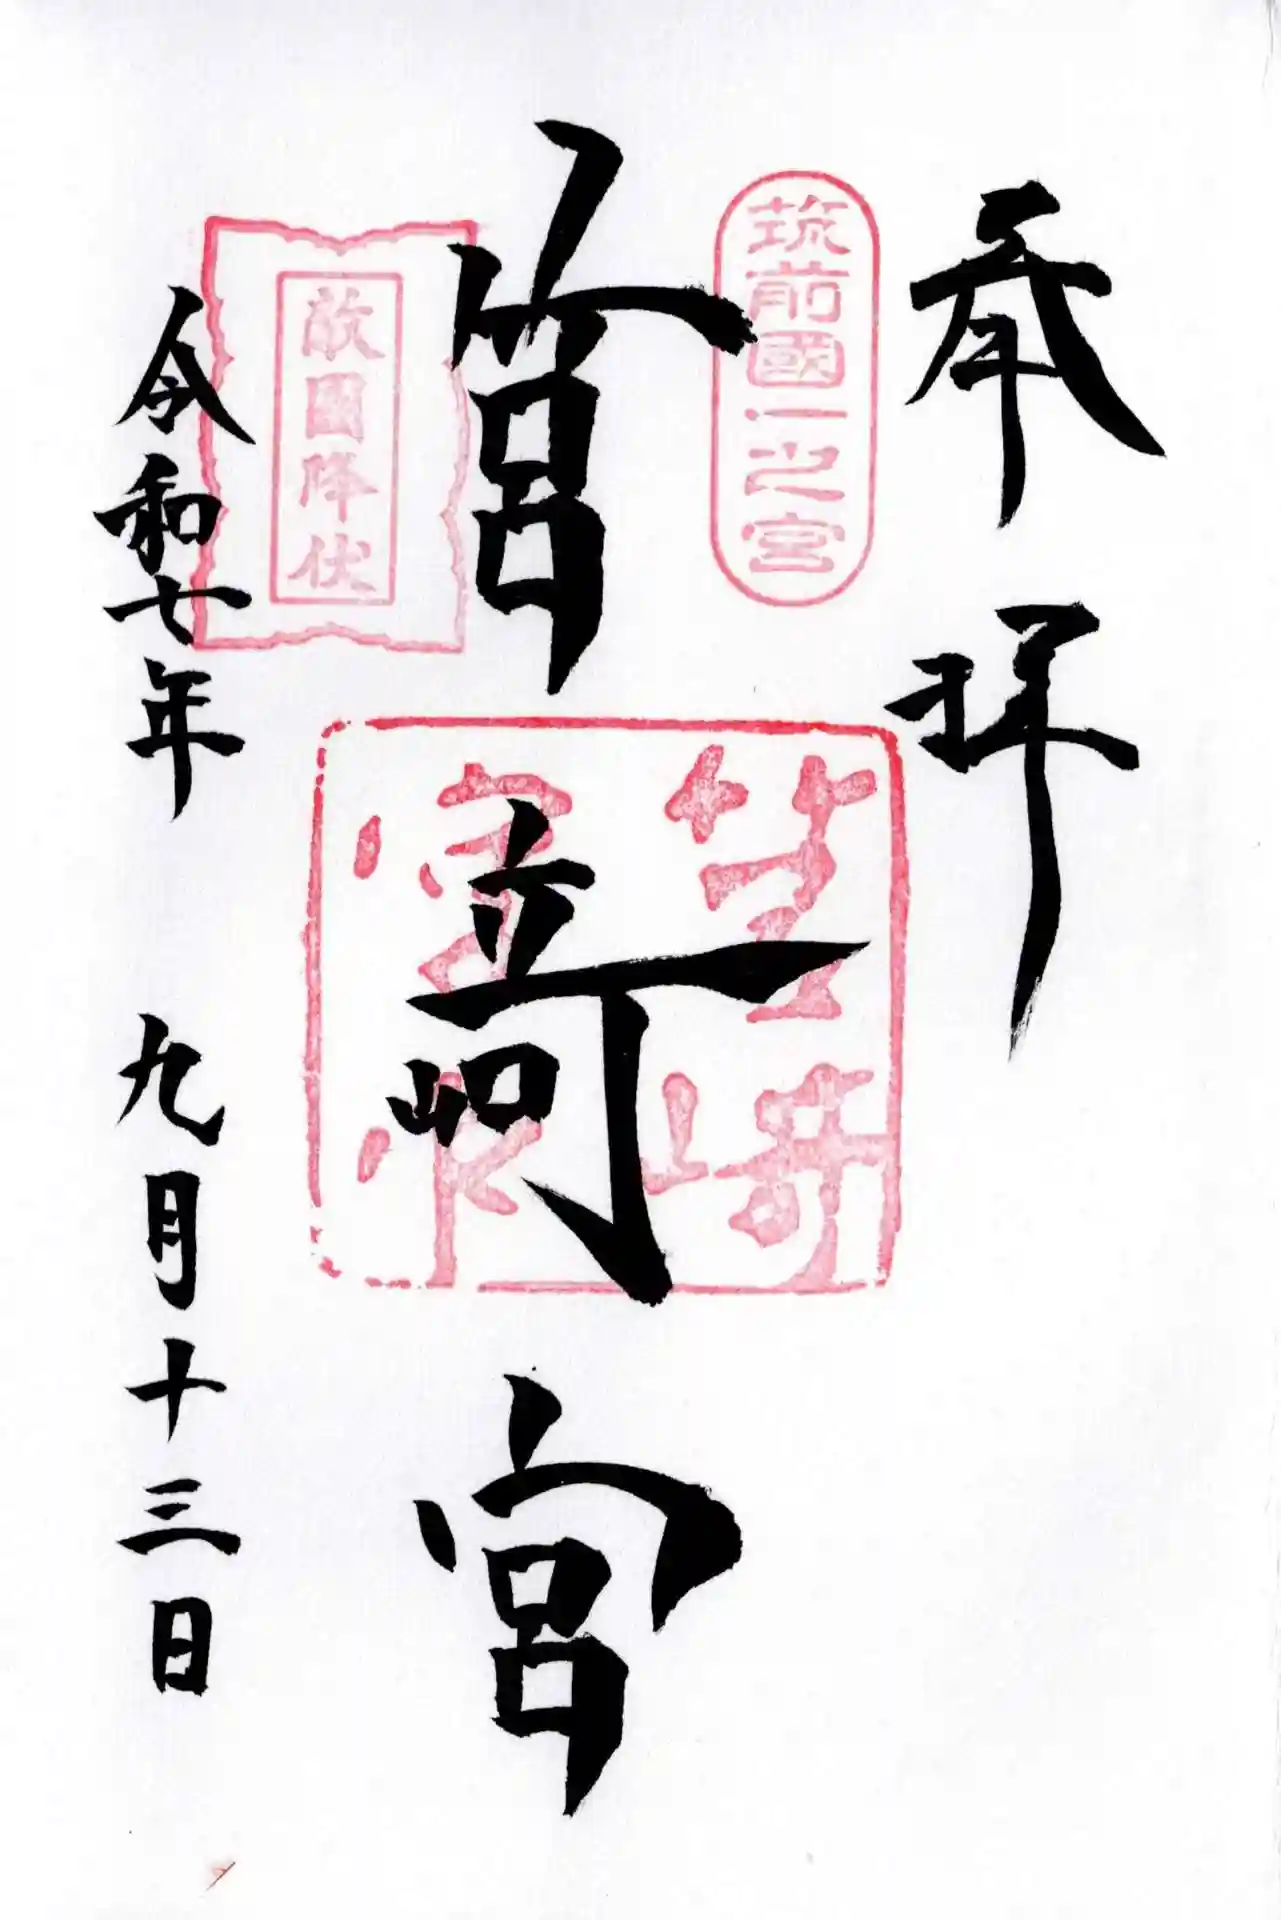 奉拝
筑前國一之宮
筥崎宮
筥崎宮印
敵国降伏
令和七年 九月十三日